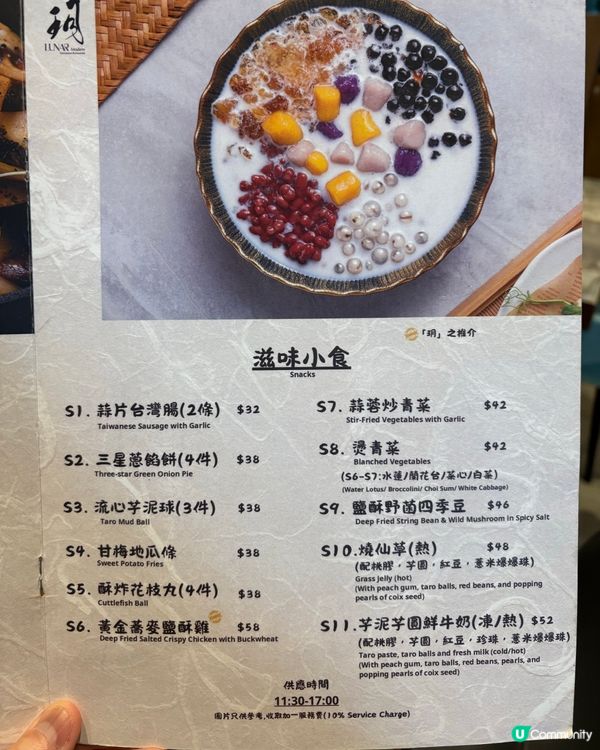 玥
LUNAR
「玥」之推介
滋味小食
Snacks
S1. 蒜片台灣腸(2條) $32
Taiwanese Sausage with Garlic
S2. 三星蔥餡餅(4件) $38
Three-star Green Onion Pie
S3. 流心芋泥球(3件) $38
Taro Mud Ball
S4. 甘梅地瓜條 $38
Sweet Potato Fries
S5. 酥炸花枝丸(4件) $38
Cuttlefish Ball
S6. 黃金蕎麥鹽酥雞 $58
Deep Fried Salted Crispy Chicken with Buckwheat
S7. 蒜蓉炒青菜 $42
Stir-Fried Vegetables with Garlic
S8. 燙青菜 $42
Blanched Vegetables
(S6-S7:水蓮/蘭花台/菜心/白菜)
(Water Lotus/ Broccolini/ Choi Sum/ White Cabbage)
S9. 鹽酥野菌四季豆 $46
Deep Fried String Bean & Wild Mushroom in Spicy Salt
S10.燒仙草(熱) $48
(配桃膠，芋圓，紅豆，薏米爆爆珠)
Grass jelly (hot)
(With peach gum, taro balls, red beans, and popping
pearls of coix seed)
S11.芋泥芋圓鮮牛奶(凍/熱) $52
(配桃膠，芋圓，紅豆，珍珠，薏米爆爆珠)
Taro paste, taro balls and fresh milk (cold/hot)
(With peach gum, taro balls, red beans, pearls, and
popping pearls of coix seed)
供應時間
11:30-17:00
圖片只供參考,收取加一服務費(10% Service Charge)
U Community